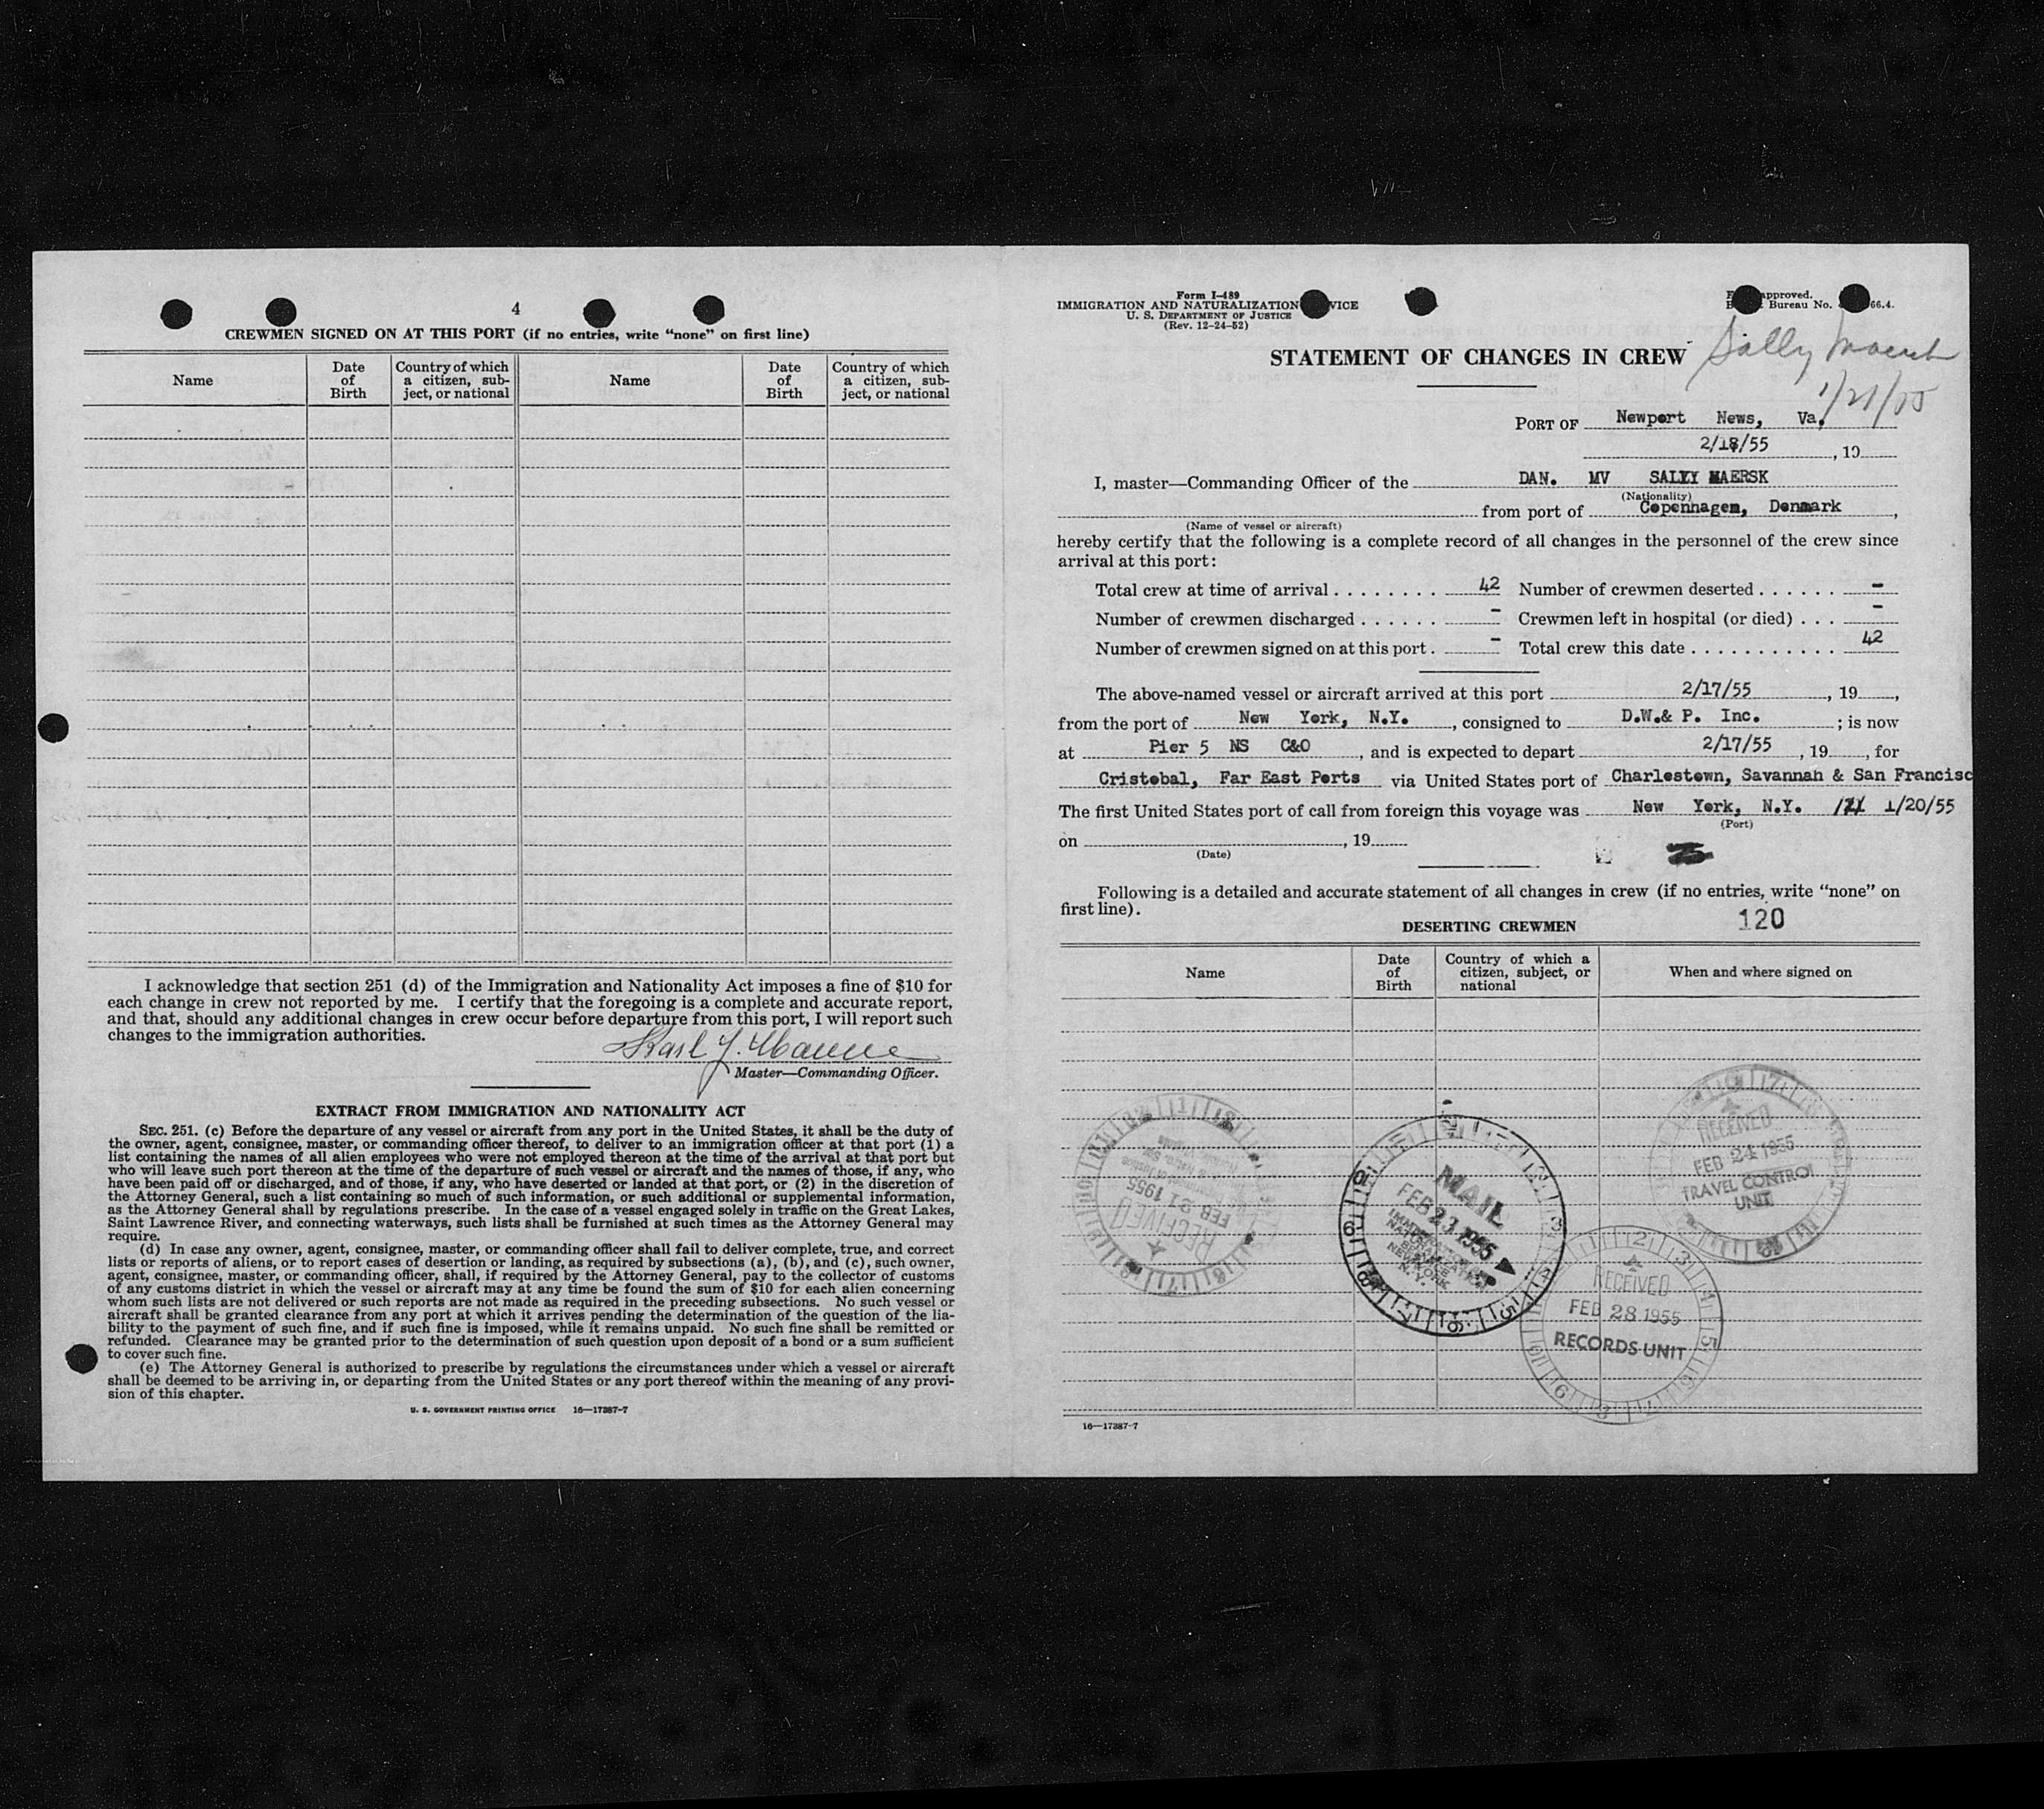 4
CREWMEN SIGNED ON AT THIS PORT (if no entries, write "none" on first line)
Name
Date of Birth
Country of which a citizen, sub-ject, or national
Name
Date of Birth
Country of which a citizen, sub-ject, or national
I acknowledge that section 251 (d) of the Immigration and Nationality Act imposes a fine of $10 for
each change in crew not reported by me. I certify that the foregoing is a complete and accurate report,
and that, should any additional changes in crew occur before departure from this port, I will report such
changes to the immigration authorities.
Master—Commanding Officer.
EXTRACT FROM IMMIGRATION AND NATIONALITY ACT
SEC. 251. (c) Before the departure of any vessel or aircraft from any port in the United States, it shall be the duty of
the owner, agent, consignee, master, or commanding officer thereof, to deliver to an immigration officer at that port (1) a
list containing the names of all alien employees who were not employed thereon at the time of the arrival at that port but
who will leave such port thereon at the time of the departure of such vessel or aircraft and the names of those, if any, who
have been paid off or discharged, and of those, if any, who have deserted or landed at that port, or (2) in the discretion of
the Attorney General, such a list containing so much of such information, or such additional or supplemental information,
as the Attorney General shall by regulations prescribe. In the case of a vessel engaged solely in traffic on the Great Lakes,
Saint Lawrence River, and connecting waterways, such lists shall be furnished at such times as the Attorney General may
require.
(d) In case any owner, agent, consignee, master, or commanding officer shall fail to deliver complete, true, and correct
lists or reports of aliens, or to report cases of desertion or landing, as required by subsections (a), (b), and (c), such owner,
agent, consignee, master, or commanding officer, shall, if required by the Attorney General, pay to the collector of customs
of any customs district in which the vessel or aircraft may at any time be found the sum of $10 for each alien concerning
whom such lists are not delivered or such reports are not made as required in the preceding subsections. No such vessel or
aircraft shall be granted clearance from any port at which it arrives pending the determination of the question of the lia-
bility to the payment of such fine, and if such fine is imposed, while it remains unpaid. No such fine shall be remitted or
refunded. Clearance may be granted prior to the determination of such question upon deposit of a bond or a sum sufficient
to cover such fine.
(e) The Attorney General is authorized to prescribe by regulations the circumstances under which a vessel or aircraft
shall be deemed to be arriving in, or departing from the United States or any port thereof within the meaning of any provi-
sion of this chapter.
U. S. GOVERNMENT PRINTING OFFICE 16—17387-7
Form I-489
IMMIGRATION AND NATURALIZATION VICE
U. S. DEPARTMENT OF JUSTICE
(Rev. 12-24-52)
approved.
Bureau No. 66.4.
STATEMENT OF CHANGES IN CREW
Sally Maersk
PORT OF Newport News, Va.
2/18/55, 19
I, master—Commanding Officer of the DAN. MV SALLY MAERSK
(Nationality)
from port of Copenhagen, Denmark,
(Name of vessel or aircraft)
hereby certify that the following is a complete record of all changes in the personnel of the crew since
arrival at this port:
Total crew at time of arrival 42 Number of crewmen deserted -
Number of crewmen discharged - Crewmen left in hospital (or died) -
Number of crewmen signed on at this port - Total crew this date 42
The above-named vessel or aircraft arrived at this port 2/17/55, 19,
from the port of New York, N.Y., consigned to D.W.& P. Inc.; is now
at Pier 5 NS C&O, and is expected to depart 2/17/55, 19, for
Cristobal, Far East Ports via United States port of Charlestown, Savannah & San Francisc
The first United States port of call from foreign this voyage was New York, N.Y. 1/20/55
(Port)
on , 19
(Date)
Following is a detailed and accurate statement of all changes in crew (if no entries, write "none" on
first line).
120
DESERTING CREWMEN
Name
Date of Birth
Country of which a citizen, subject, or national
When and where signed on
RECEIVED
FEB 21 1955
MAIL
FEB 23 1955
NEW YORK
N. Y.
RECEIVED
FEB 24 1955
TRAVEL CONTROL
UNIT
RECEIVED
FEB 28 1955
RECORDS UNIT
16—17387-7